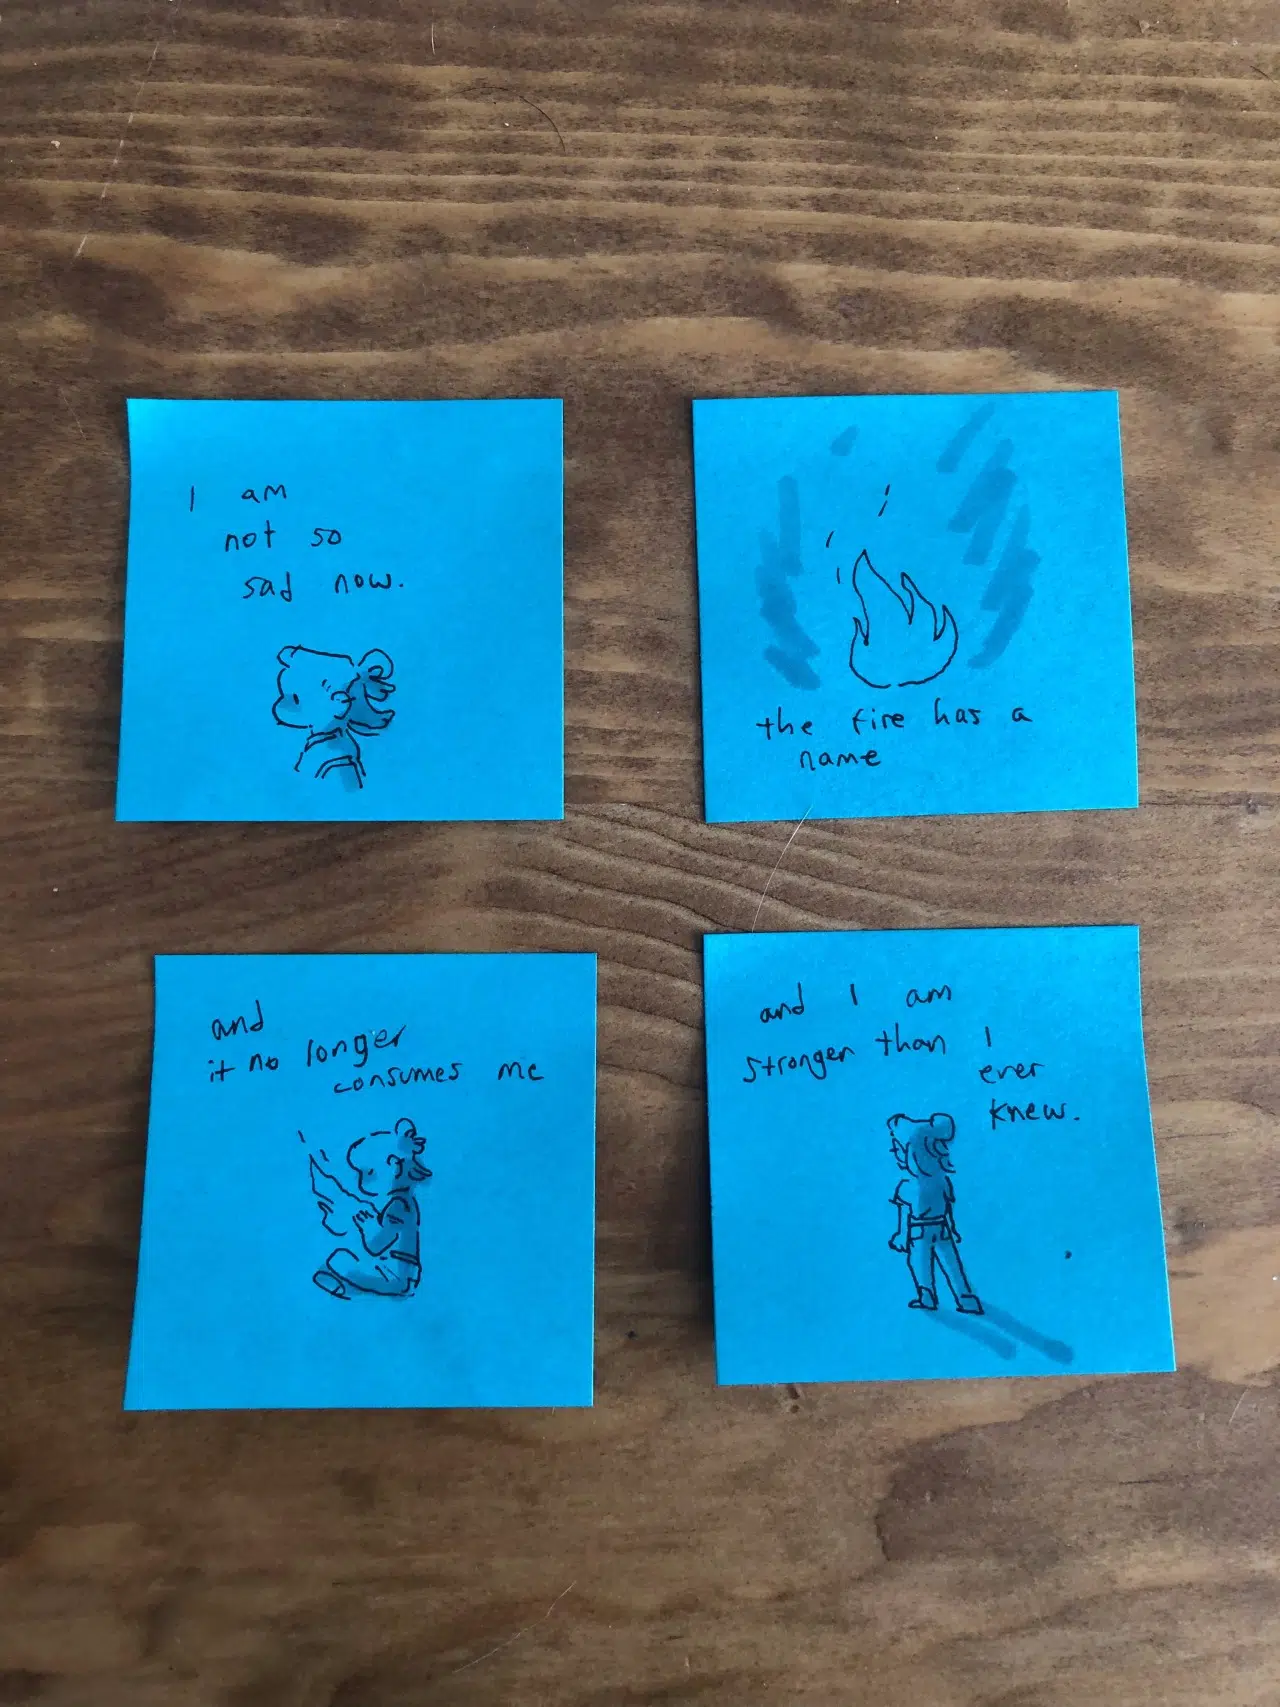 I am
not so
sad now.
the fire has a
name
and
it no longer
consumes me
and I am
stronger than I
ever
knew.